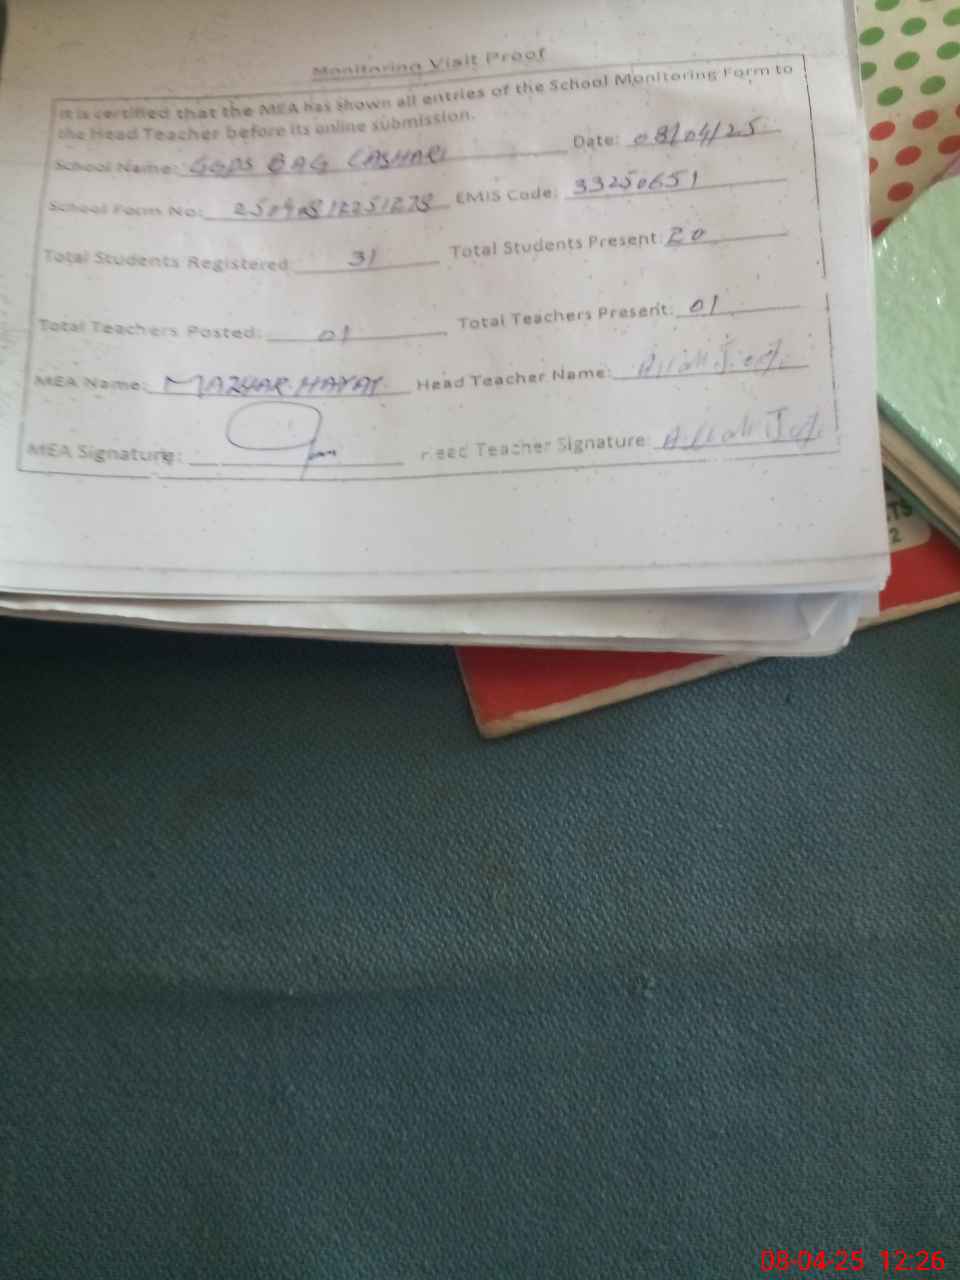 Monitoring Visit Proof
It is certified that the MEA has shown all entries of the School Monitoring Form to
the Head Teacher before its online submission.
School Name: GGPS BAG Date: 08/04/25
School Form No: EMIS Code: 33250651
Total Students Registered 31 Total Students Present: 20
Total Teachers Posted: 01 Total Teachers Present: 01
MEA Name: MAZHAR HAYAT Head Teacher Name:
MEA Signature: Head Teacher Signature:
TS
2
08-04-25 12:26